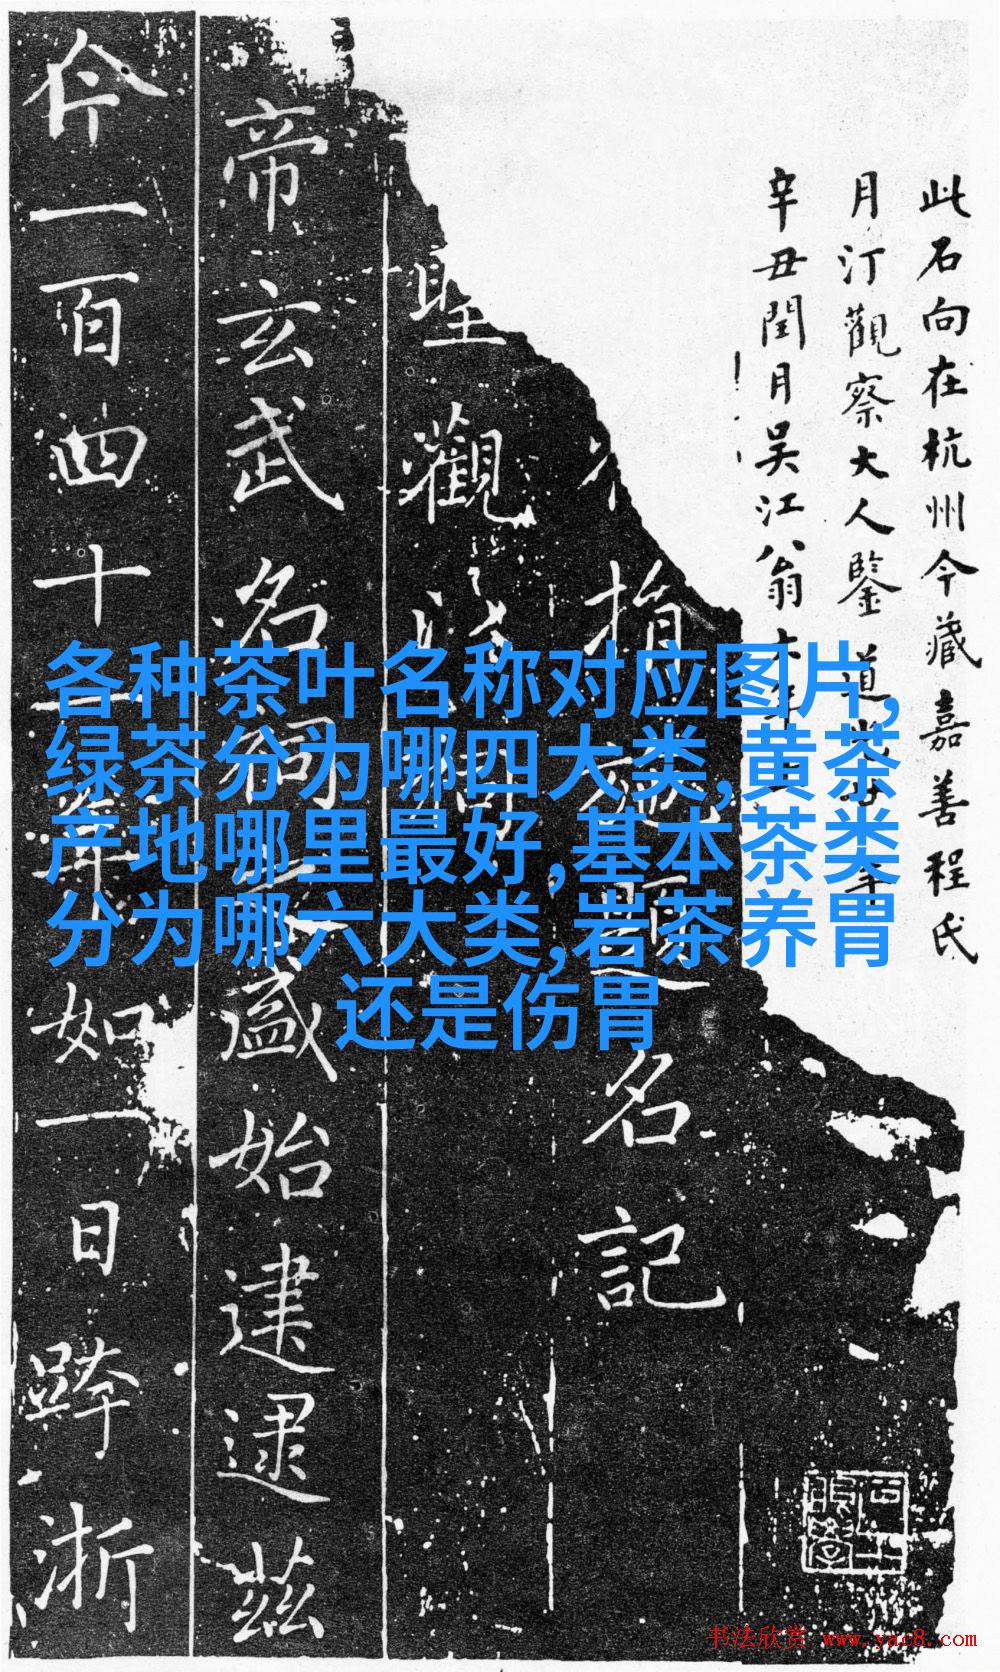 此石向在杭州今藏嘉善程氏
月汀觀察大人鑒道
辛丑閏月吴江翁
指
名記
觀
帝玄武名
盛始建逮茲
仐一百四十
如一日跨浙
各种茶叶名称对应图片,
绿茶分为哪四大类,黄茶
产地哪里最好,基本茶类
分为哪六大类,岩茶养胃
还是伤胃
书法欣赏 www.yac8.com